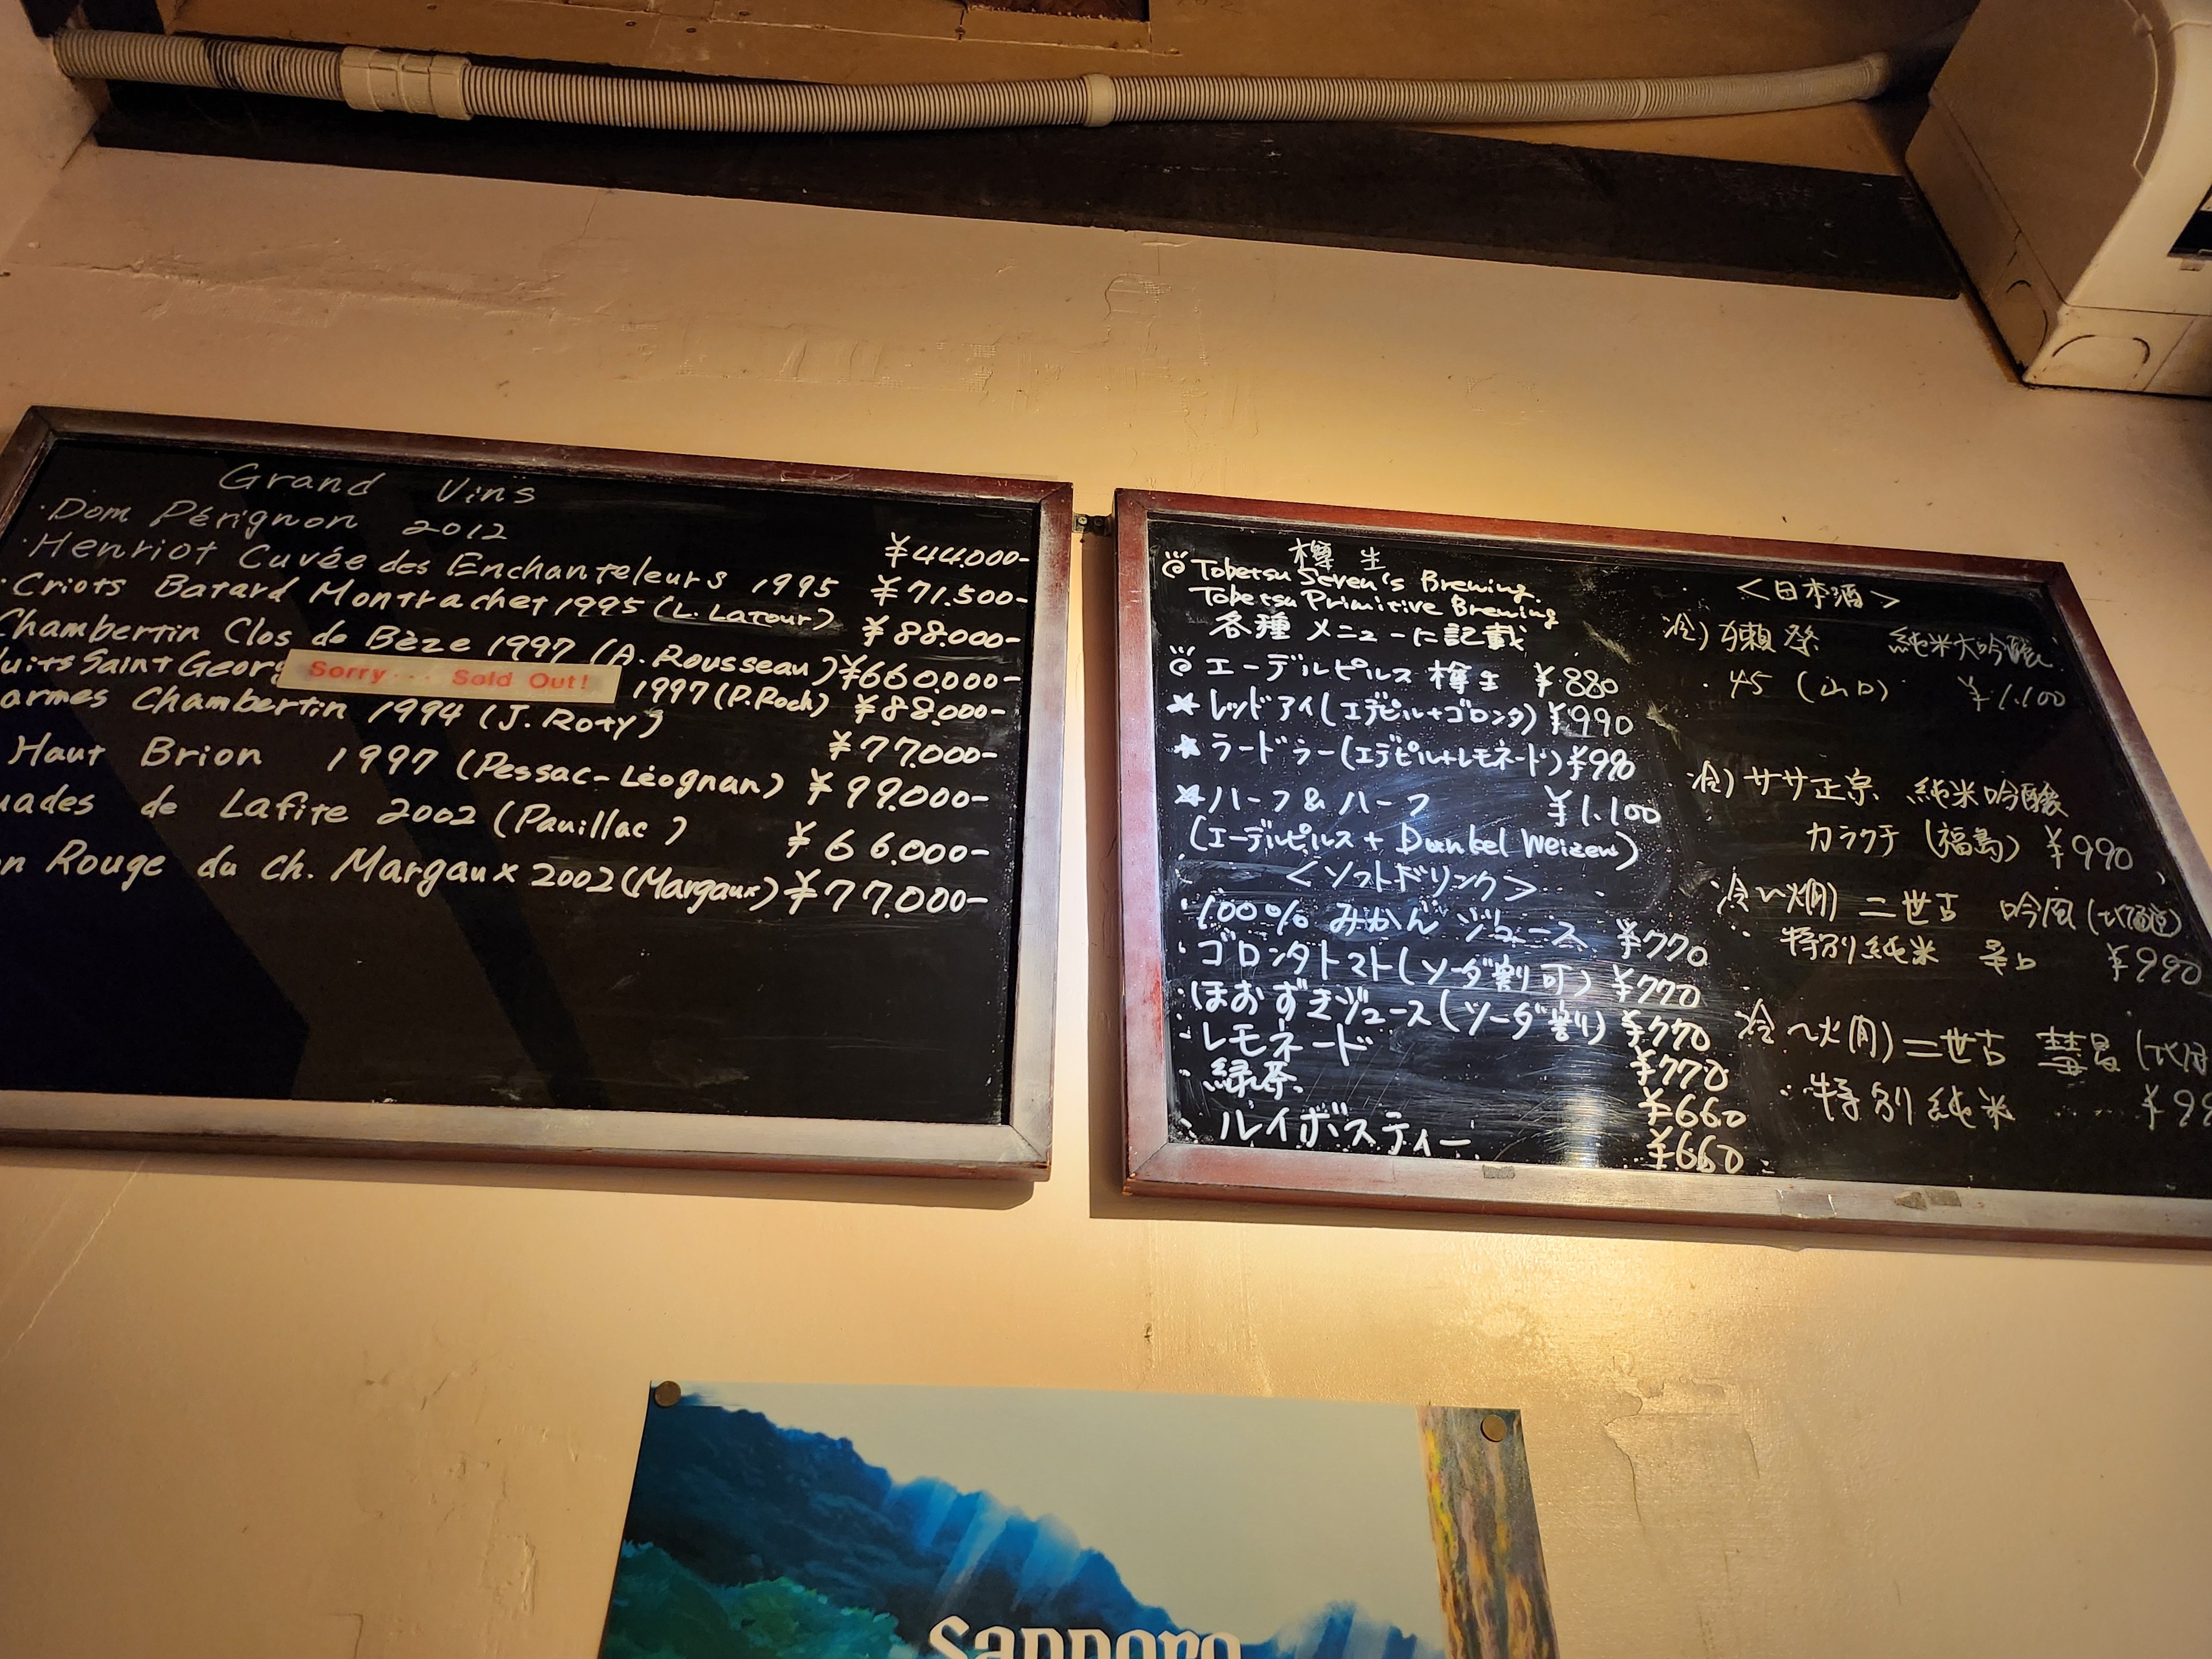 Grand Vins
・Dom Pérignon 2012 ¥44.000-
・Henriot Cuvée des Enchanteleurs 1995 ¥71.500-
・Criots Batard Montrachet 1995 (L. Latour) ¥88.000-
Chambertin Clos de Bèze 1997 (A. Rousseau) ¥660.000-
uits Saint Georg
Sorry... Sold Out!
1997 (P.Roch) ¥88.000-
armes Chambertin 1994 (J. Roty) ¥77.000-
Haut Brion 1997 (Pessac-Léognan) ¥99.000-
uades de Lafite 2002 (Pauillac) ¥66.000-
n Rouge du Ch. Margaux 2002 (Margaux) ¥77.000-
樽生
Tobetsu Seven's Brewing.
Tobetsu Primitive Brewing
各種メニューに記載
エーデルピルス 樽生 ¥880
★レッドアイ(エデピル+ゴロンタ) ¥990
★ラードラー(エデピル+レモネード) ¥990
★ハーフ&ハーフ ¥1.100
(エーデルピルス + Dunkel Weizen)
<ソフトドリンク>
・100% みかんジュース ¥770
・ゴロンタトマト(ソーダ割可) ¥770
・ほおずきジュース(ソーダ割) ¥770
・レモネード ¥770
・緑茶 ¥660
・ルイボスティー ¥660
<日本酒>
・冷) 獺祭 純米大吟醸
・45 (山口) ¥1.100
・冷) ササ正宗 純米吟醸
カラクチ (福島) ¥990
・冷〜燗) 二世古 吟風
特別純米 辛口 ¥990
冷〜燗) 二世古 彗星
特別純米 ¥99
Sapporo